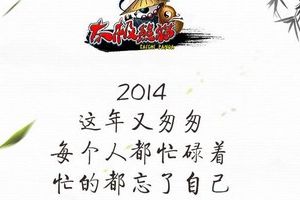 太极熊猫
TAICHI PANDA
2014
这年又匆匆
每个人都忙碌着
忙的都忘了自己